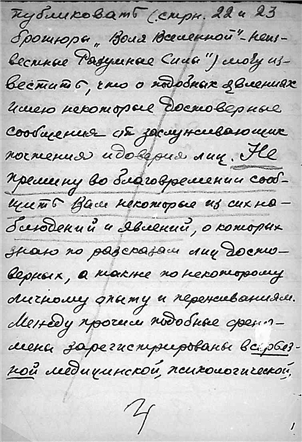 публиковать (стрн. 22 и 23
брошюры „Воля Вселенной"-неиз-
вестные Разумные Силы") могу из-
вестить, что о подобных явлениях
имею некоторые достоверные
сообщения от заслуживающих
почтения и доверия лиц. Не
премину во благовремении сооб-
щить Вам некоторые из сих на-
блюдений и явлений, о которых
знаю по рассказам лиц досто-
верных, а также по некоторому
личному опыту и переживаниям.
Между прочим подобные фено-
мены зарегистрированы в серьез-
ной медицинской, психологической,